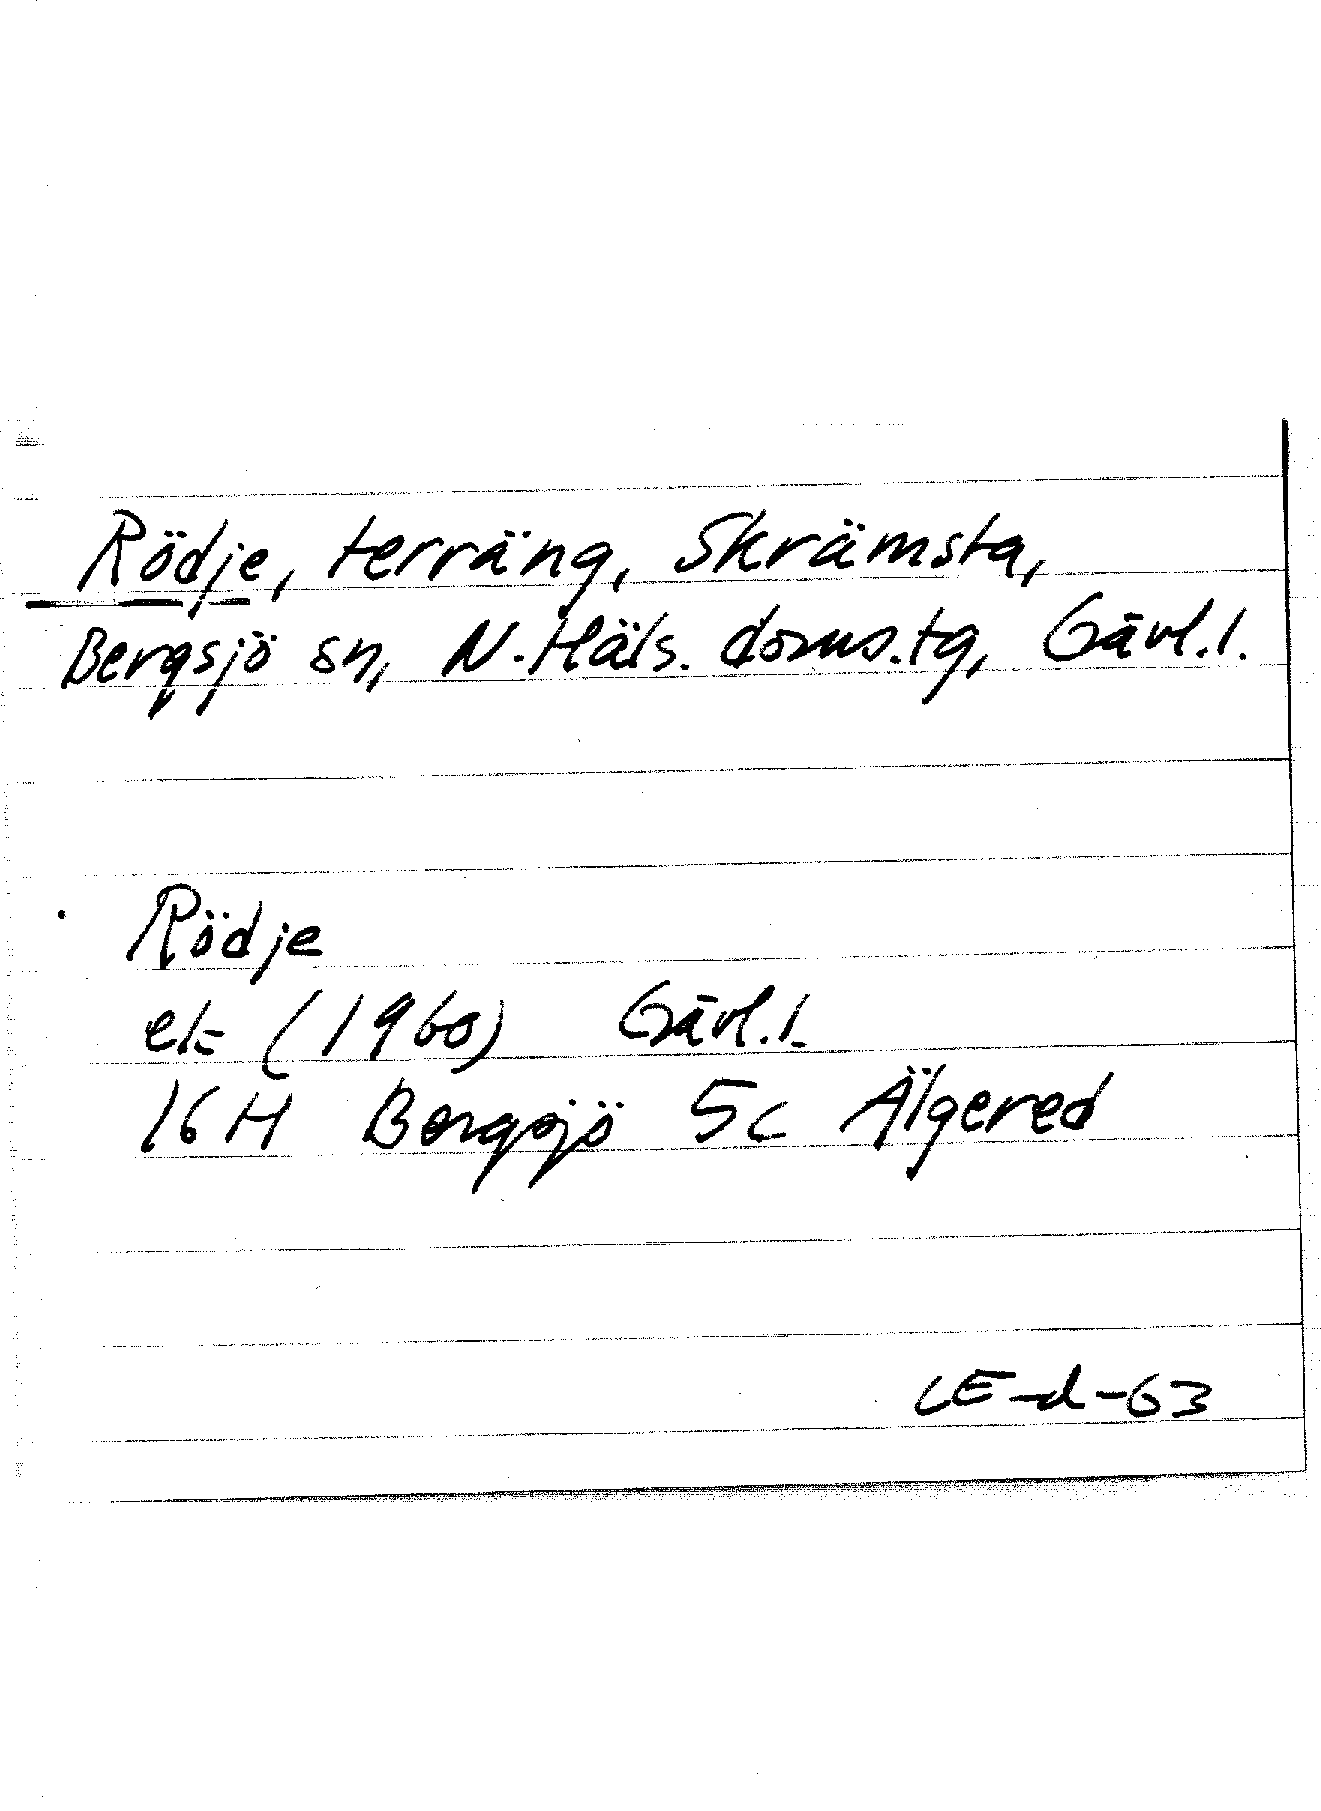 Rödje, terräng, Skrämsta,
Bergsjö sn, N. Häls. doms.tg, Gävl.l.
Rödje
ek (1960) Gävl.l.
16H Bergsjö 5c Älgered
LE-d-63